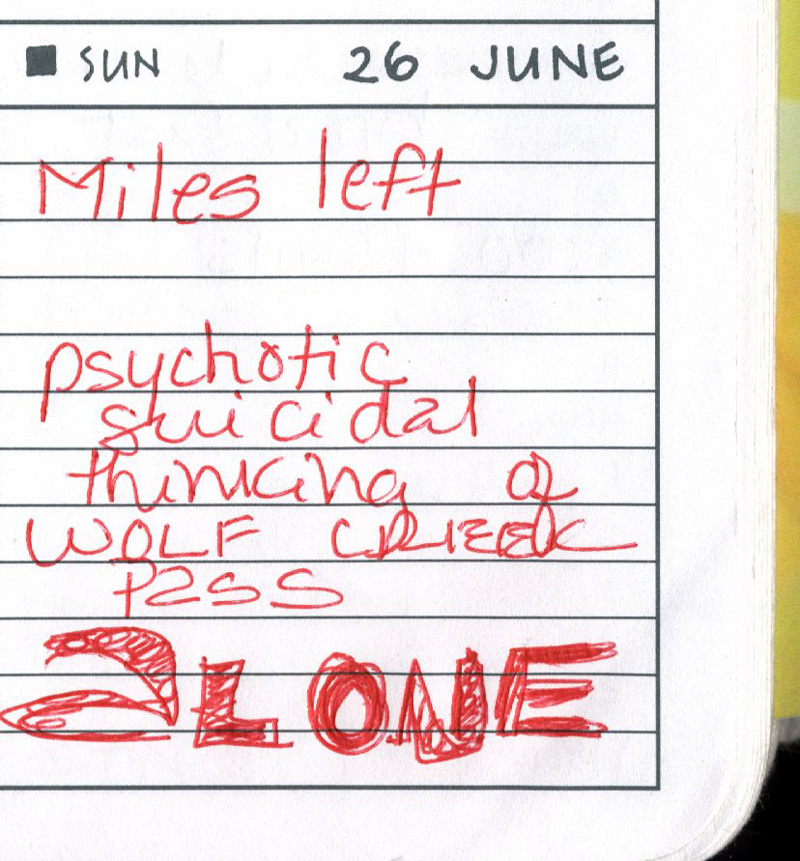 SUN 26 JUNE
Miles left
psychotic
suicidal
thinking of
WOLF CREEK
PASS
ALONE